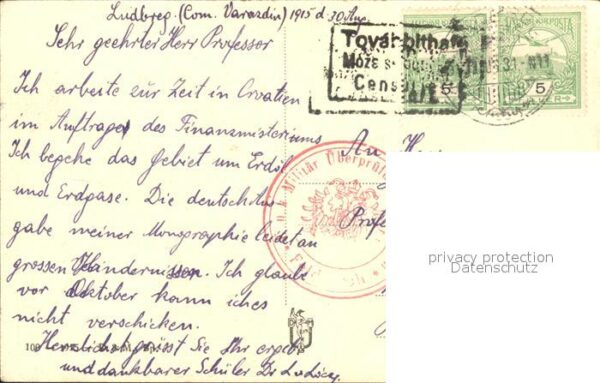 Ludbreg. (Com. Varasdin) 1915 d. 30 Aug.
Sehr geehrter Herr Professor
Ich arbeite zur Zeit in Croatien
im Auftrage des Finanzministeriums
Ich begehe das Gebiet um Erdöl
und Erdgase. Die deutsche Aus-
gabe meiner Monographie leidet an
grossen Händernissen. Ich glaube
vor Oktober kann ich es
nicht verschicken.
Herzlichst grüsst Sie Ihr ergeb.
und dankbarer Schüler Dr
Továbbitható
Censurált
MAGYAR KIR. POSTA
5
5
k.u.k. Militär Überprüfungs
Feldkirch
An
Herr
Profe
privacy protection
Datenschutz